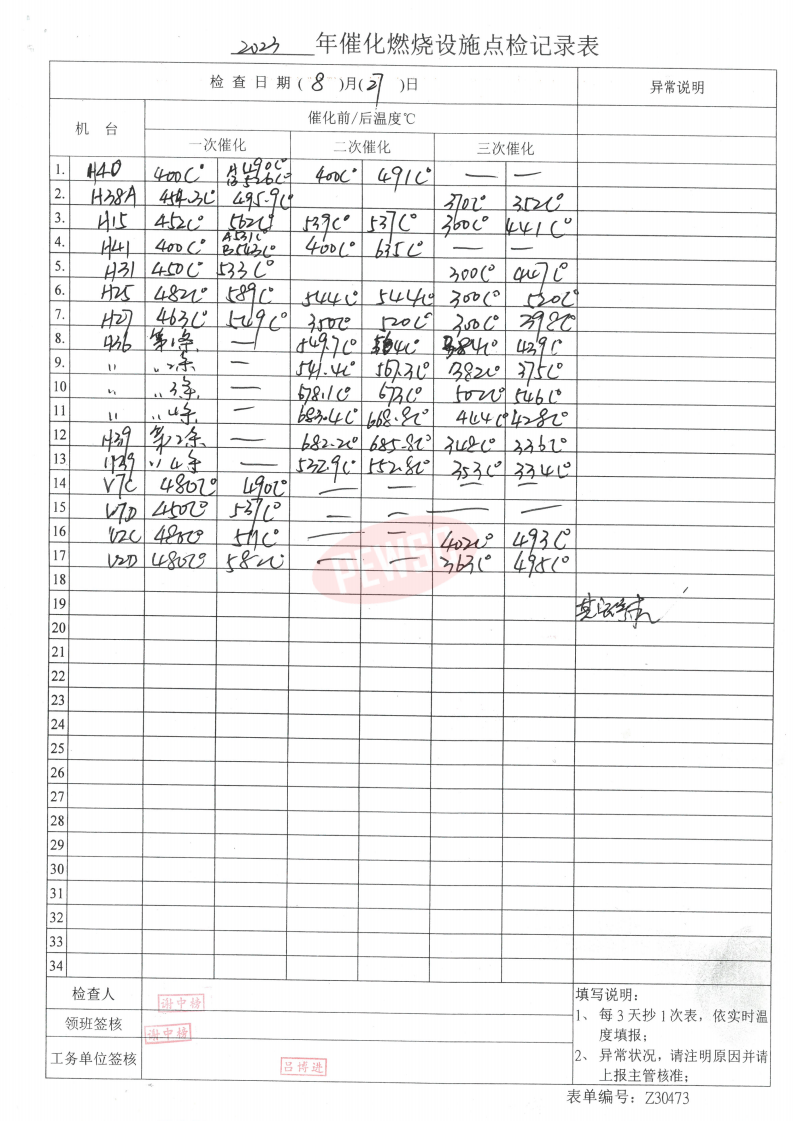 2023 年催化燃烧设施点检记录表
检 查 日 期 ( 8 )月( 27 )日 异常说明
机 台 催化前/后温度℃
一次催化 二次催化 三次催化
1. H40 400C° A 490C° B 526C° 400C° 491C° — —
2. H38A 454.3C° 495.9C° 370C° 352C°
3. H15 452C° 562C° 539C° 537C° 300C° 441C°
4. H41 400C° A531C° B543C° 400C° 635C° — —
5. H31 450C° 533C° 300C° 447C°
6. H25 482C° 589C° 544C° 544C° 300C° 520C°
7. H27 463C° 549C° 350C° 520C° 300C° 298C°
8. H36 第1条 — 549.7C° 384C° 439C°
9. 〃 〃2条 — 541.4C° 567.3C° 382C° 375C°
10 〃 〃3条 — 678.1C° 673C° 502C° 546C°
11 〃 〃4条 — 683.4C° 668.8C° 444C° 428C°
12 H39 第2条 — 682.2C° 685.8C° 348C° 336C°
13 H39 〃4条 — 532.9C° 552.8C° 353C° 334C°
14 V7C 480C° 490C° — — — —
15 V7D 450C° 537C° — — — —
16 V2C 480C° 571C° — — 402C° 493C°
17 V2D 480C° 582C° — — 363C° 498C°
PEWSC
18
19
20
21
22
23
24
25
26
27
28
29
30
31
32
33
34
检查人 谢中榜
领班签核 谢中榜
工务单位签核 吕博进
填写说明：
1、 每 3 天抄 1 次表，依实时温
度填报；
2、 异常状况，请注明原因并请
上报主管核准；
表单编号：Z30473